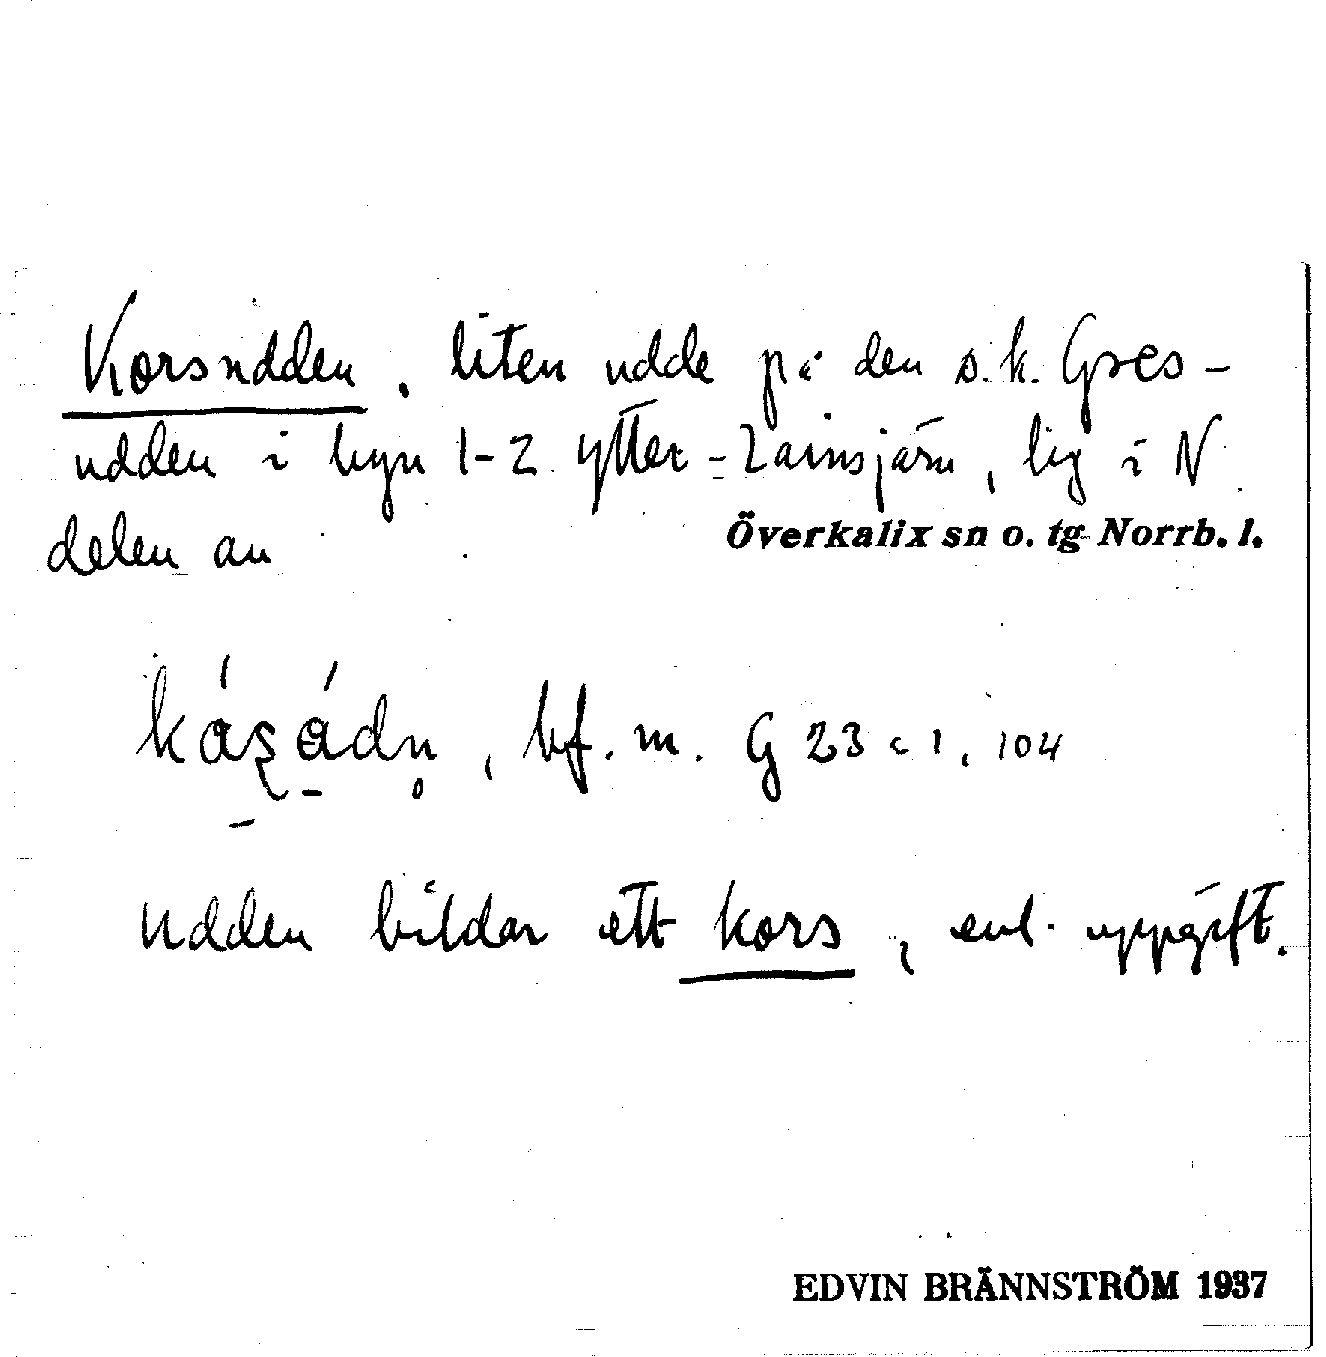 Korsudden, liten udde på den s.k. Gres-
udden i hyn 1-2 Ytter-Lainsjärn, lig i N
delen av
Överkalix sn o. tg Norrb. l.
bf. m. G 23 c 1, 104
Udden bildar ett kors, enl. uppgift.
EDVIN BRÄNNSTRÖM 1937